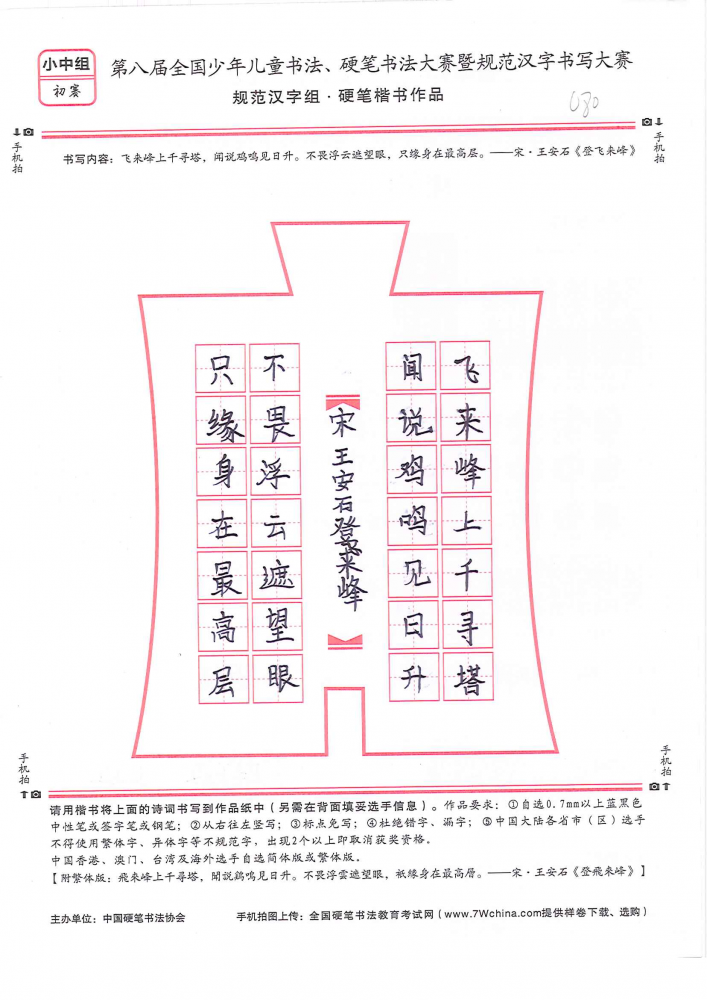 小中组
初赛
第八届全国少年儿童书法、硬笔书法大赛暨规范汉字书写大赛
规范汉字组·硬笔楷书作品
080
手机拍
手机拍
书写内容：飞来峰上千寻塔，闻说鸡鸣见日升。不畏浮云遮望眼，只缘身在最高层。——宋·王安石《登飞来峰》
飞来峰上千寻塔
闻说鸡鸣见日升
宋王安石登飞来峰
不畏浮云遮望眼
只缘身在最高层
手机拍
手机拍
请用楷书将上面的诗词书写到作品纸中（另需在背面填妥选手信息）。作品要求：①自选0.7mm以上蓝黑色
中性笔或签字笔或钢笔；②从右往左竖写；③标点免写；④杜绝错字、漏字；⑤中国大陆各省市（区）选手
不得使用繁体字、异体字等不规范字，出现2个以上即取消获奖资格。
中国香港、澳门、台湾及海外选手自选简体版或繁体版。
【附繁体版：飛来峰上千尋塔，聞説鷄鳴見日升。不畏浮雲遮望眼，衹緣身在最高層。——宋·王安石《登飛来峰》】
主办单位：中国硬笔书法协会
手机拍图上传：全国硬笔书法教育考试网（www.7Wchina.com提供样卷下载、选购）